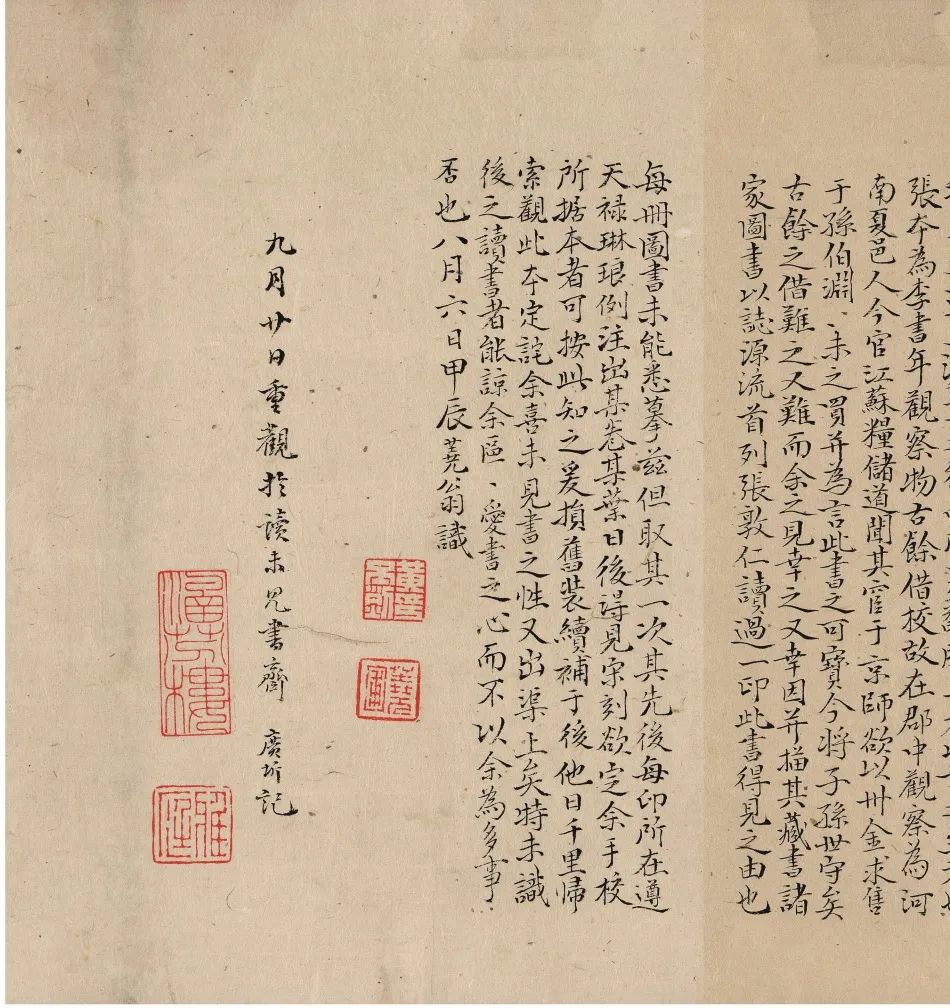 張本為李書年觀察物古餘借校故在郡中觀察為河
南夏邑人今官江蘇糧儲道聞其官于京師欲以卅金求售
于孫伯淵、未之買并為言此書之可寶今將子孫世守矣
古餘之借難之又難而余之見幸之又幸因并描其藏書諸
家圖書以誌源流首列張敦仁讀過一印此書得見之由也
每冊圖書未能悉摹茲但取其一次其先後每印所在遵
天祿琳琅例注出某卷某葉日後得見宋刻欲定余手校
所据本者可按此知之爰損舊裝續補于後他日千里歸
索觀此本定詫余喜未見書之性又出渠上矣特未識
後之讀書者能諒余區、愛書之心而不以余為多事
否也八月六日甲辰蕘翁識
黃丕烈
蕘圃
九月廿日重觀於讀未見書齋 廣圻記